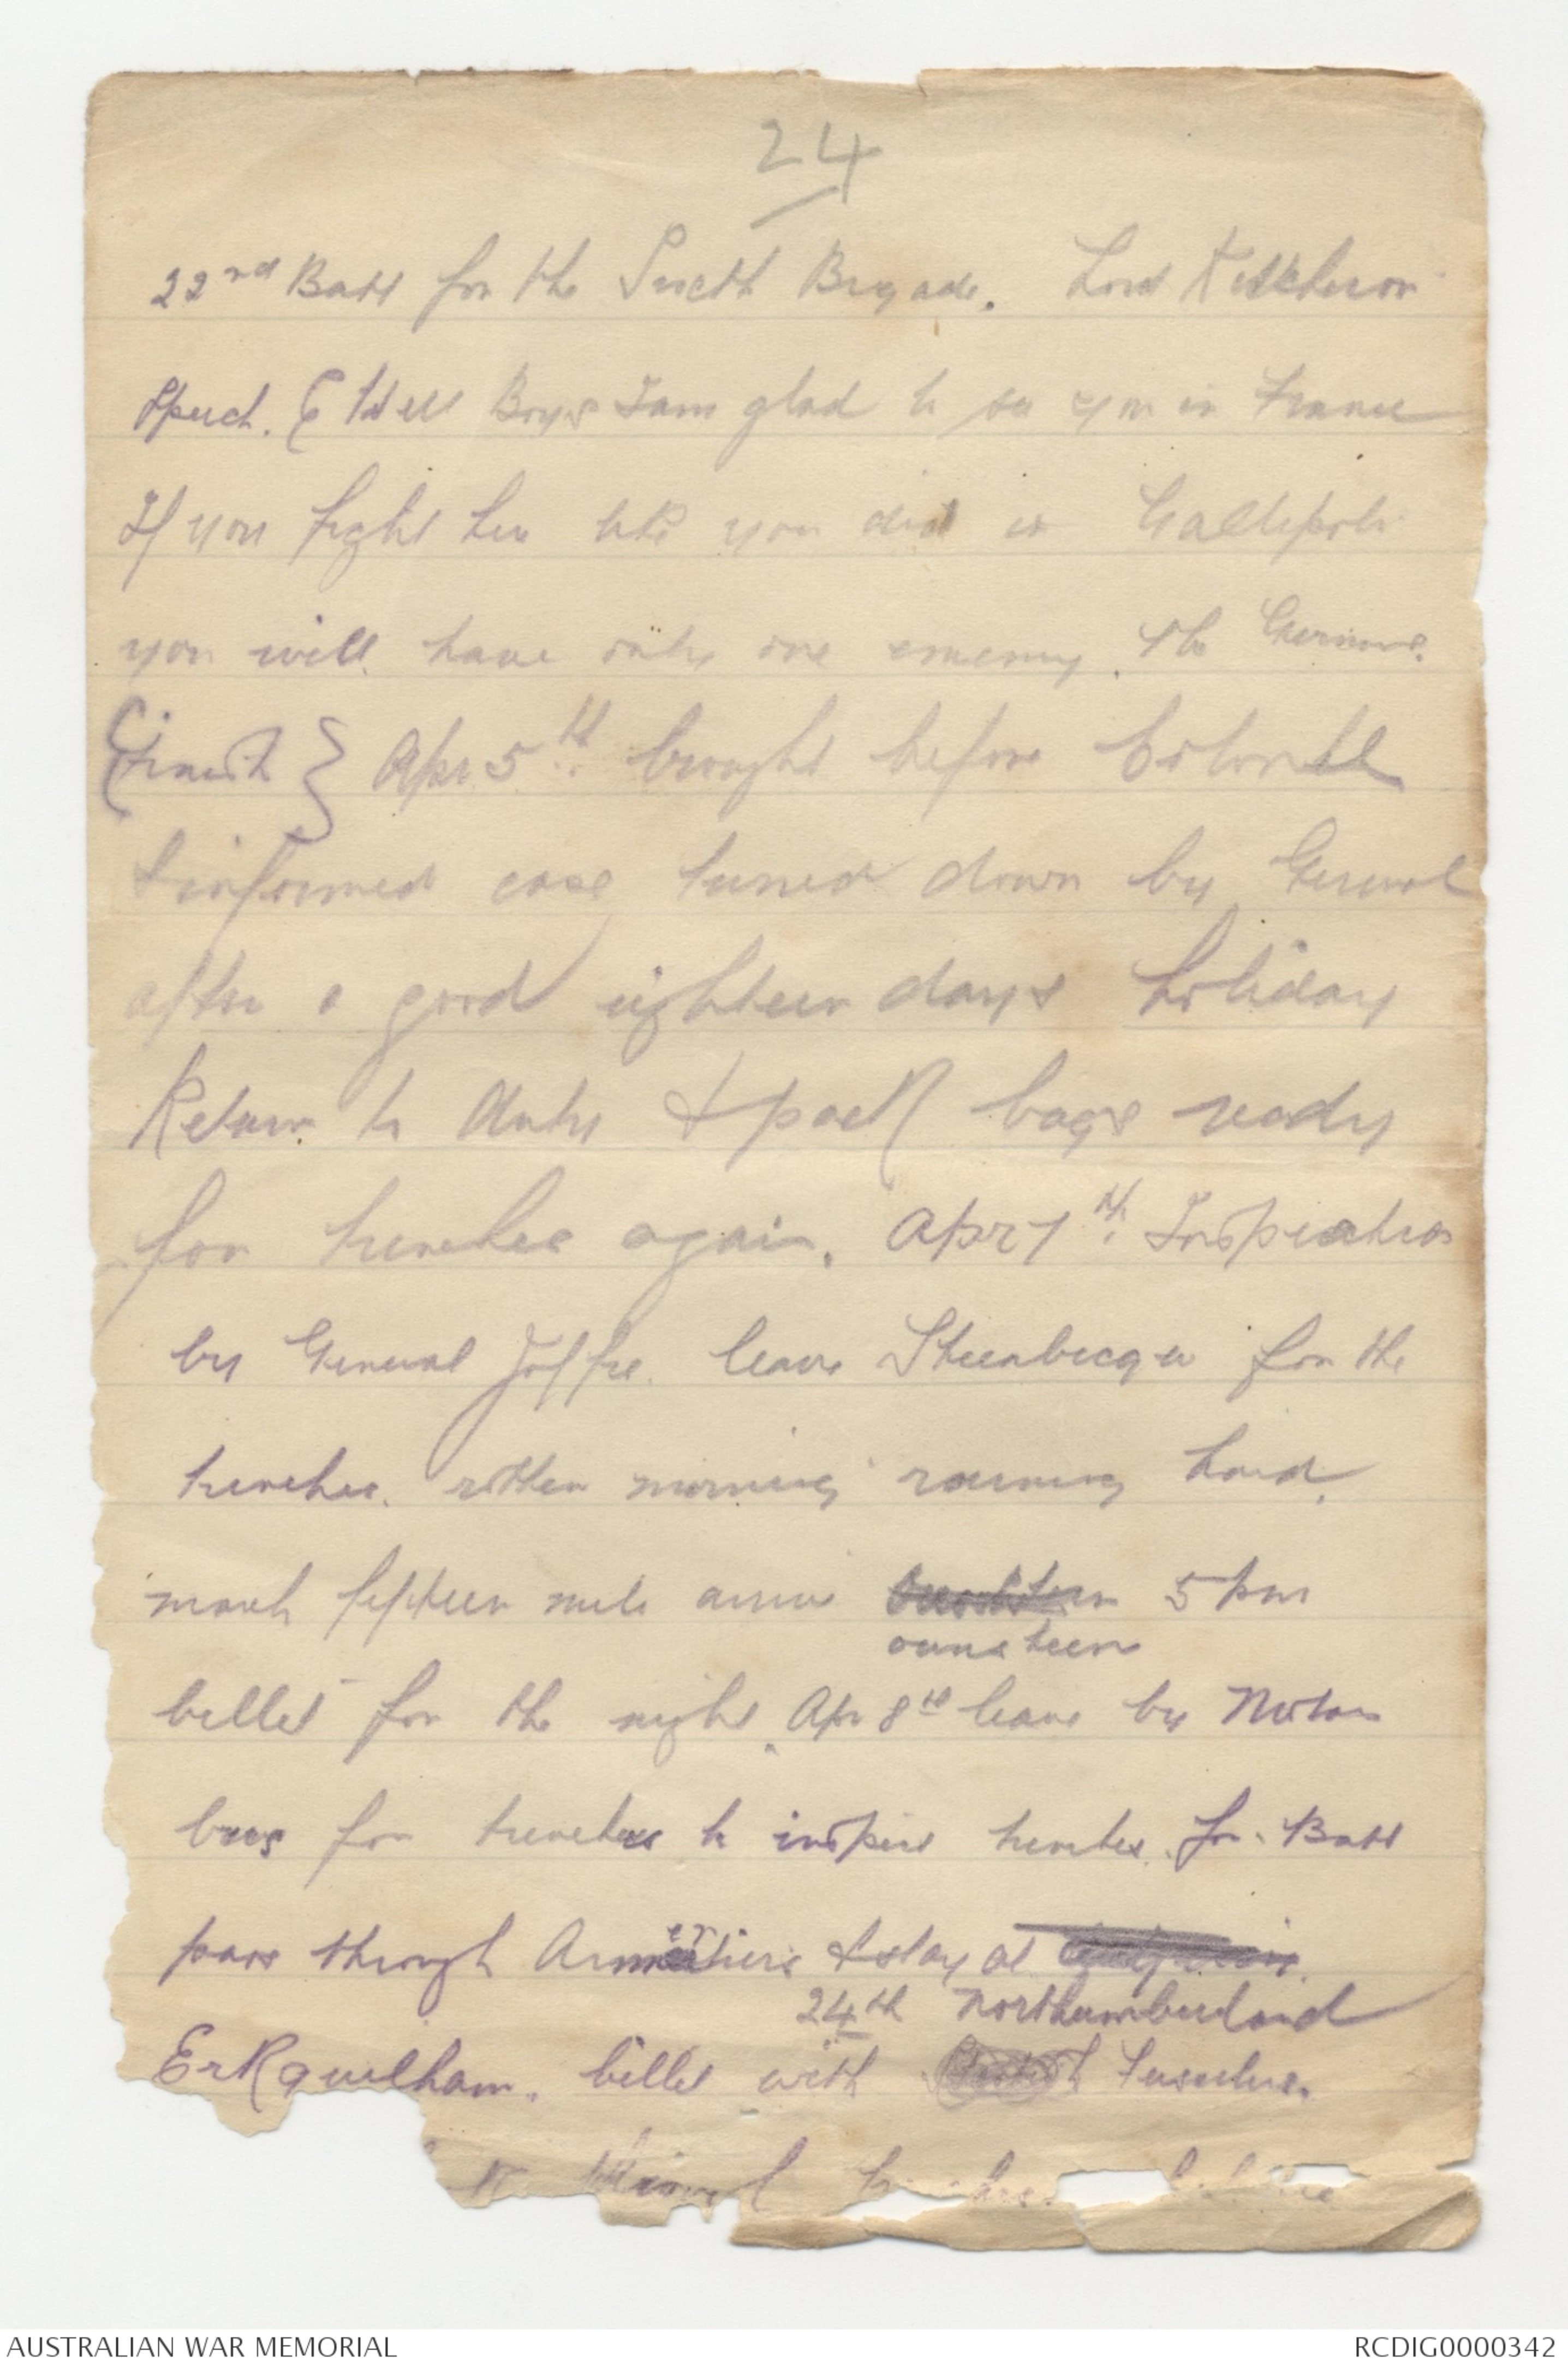 24
22nd Batt for the Sixth Brigade. Lord Kitchener
Speech. ( Well Boys I am glad to see you in France
If you fight here like you did in Gallipoli
you will have only one enemy. the Germans.
Apr 5th. brought before Colonel
& informed case turned down by General
after a good eighteen days holiday
Return to duty & pack bags ready
for trenches again. Apr 7th. Inspection
by General Joffre. leave Steenbecque for the
trenches. rotten morning raining hard.
march fifteen mile arrive 5 pm
outersteen
billet for the night. Apr 8th leave by Motor
buss for trenches to inspect trenches. for Batt
pass through Armentiers & stay at
24th Northumberland
ErKquielham. billet with Fuseliers.